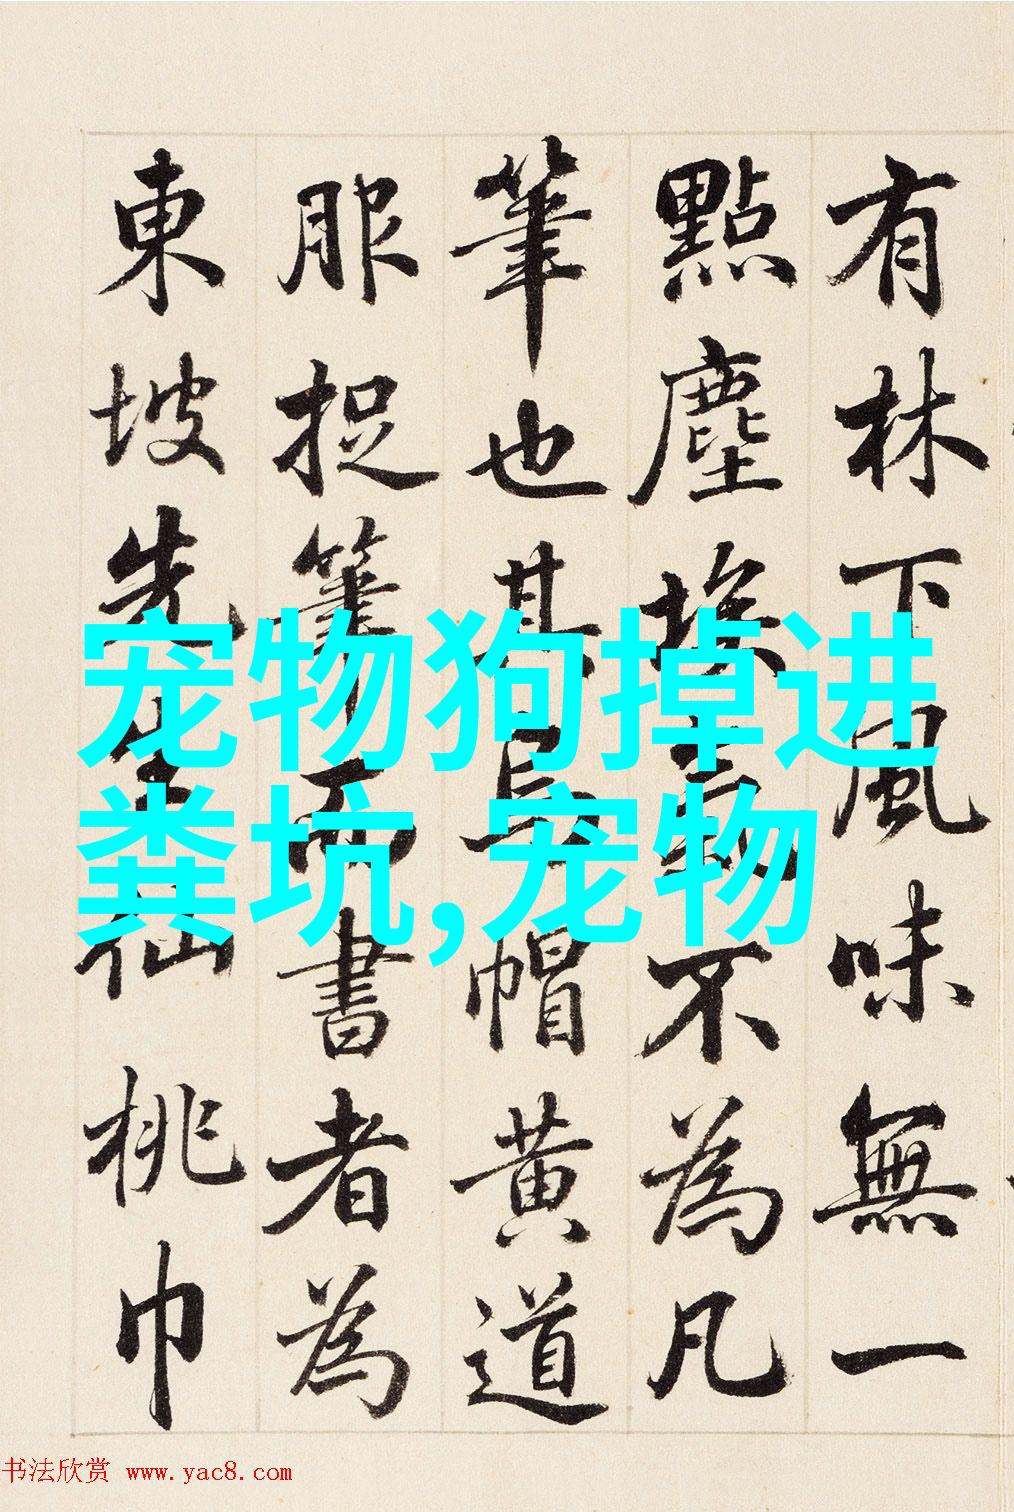 有林下風味無一
點塵埃氣不為凡
筆也其烏帽黃道
服捉筆而書者為
東坡先生仙桃巾
宠物狗掉进
粪坑,宠物
书法欣赏 www.yac8.com